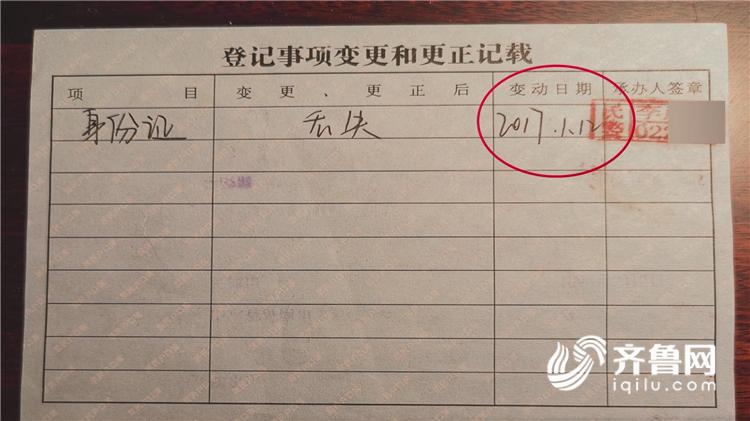 登记事项变更和更正记载
项 目 变更、更正后 变动日期 承办人签章
身份证 丢失 2017.1.12 民警 李 022
齐鲁网
iqilu.com